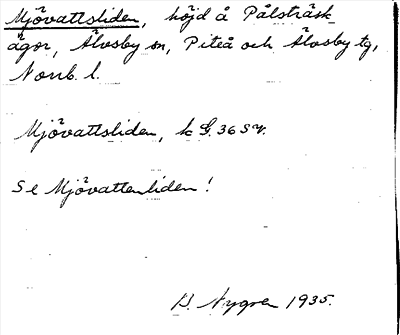 Mjövattsliden, höjd å Pålsträsk
ägor, Älvsby sn, Piteå och Älvsby tg,
Norrb. l.
Mjövattsliden, k G. 36 SV.
Se Mjövattenliden!
B. Nygren 1935.